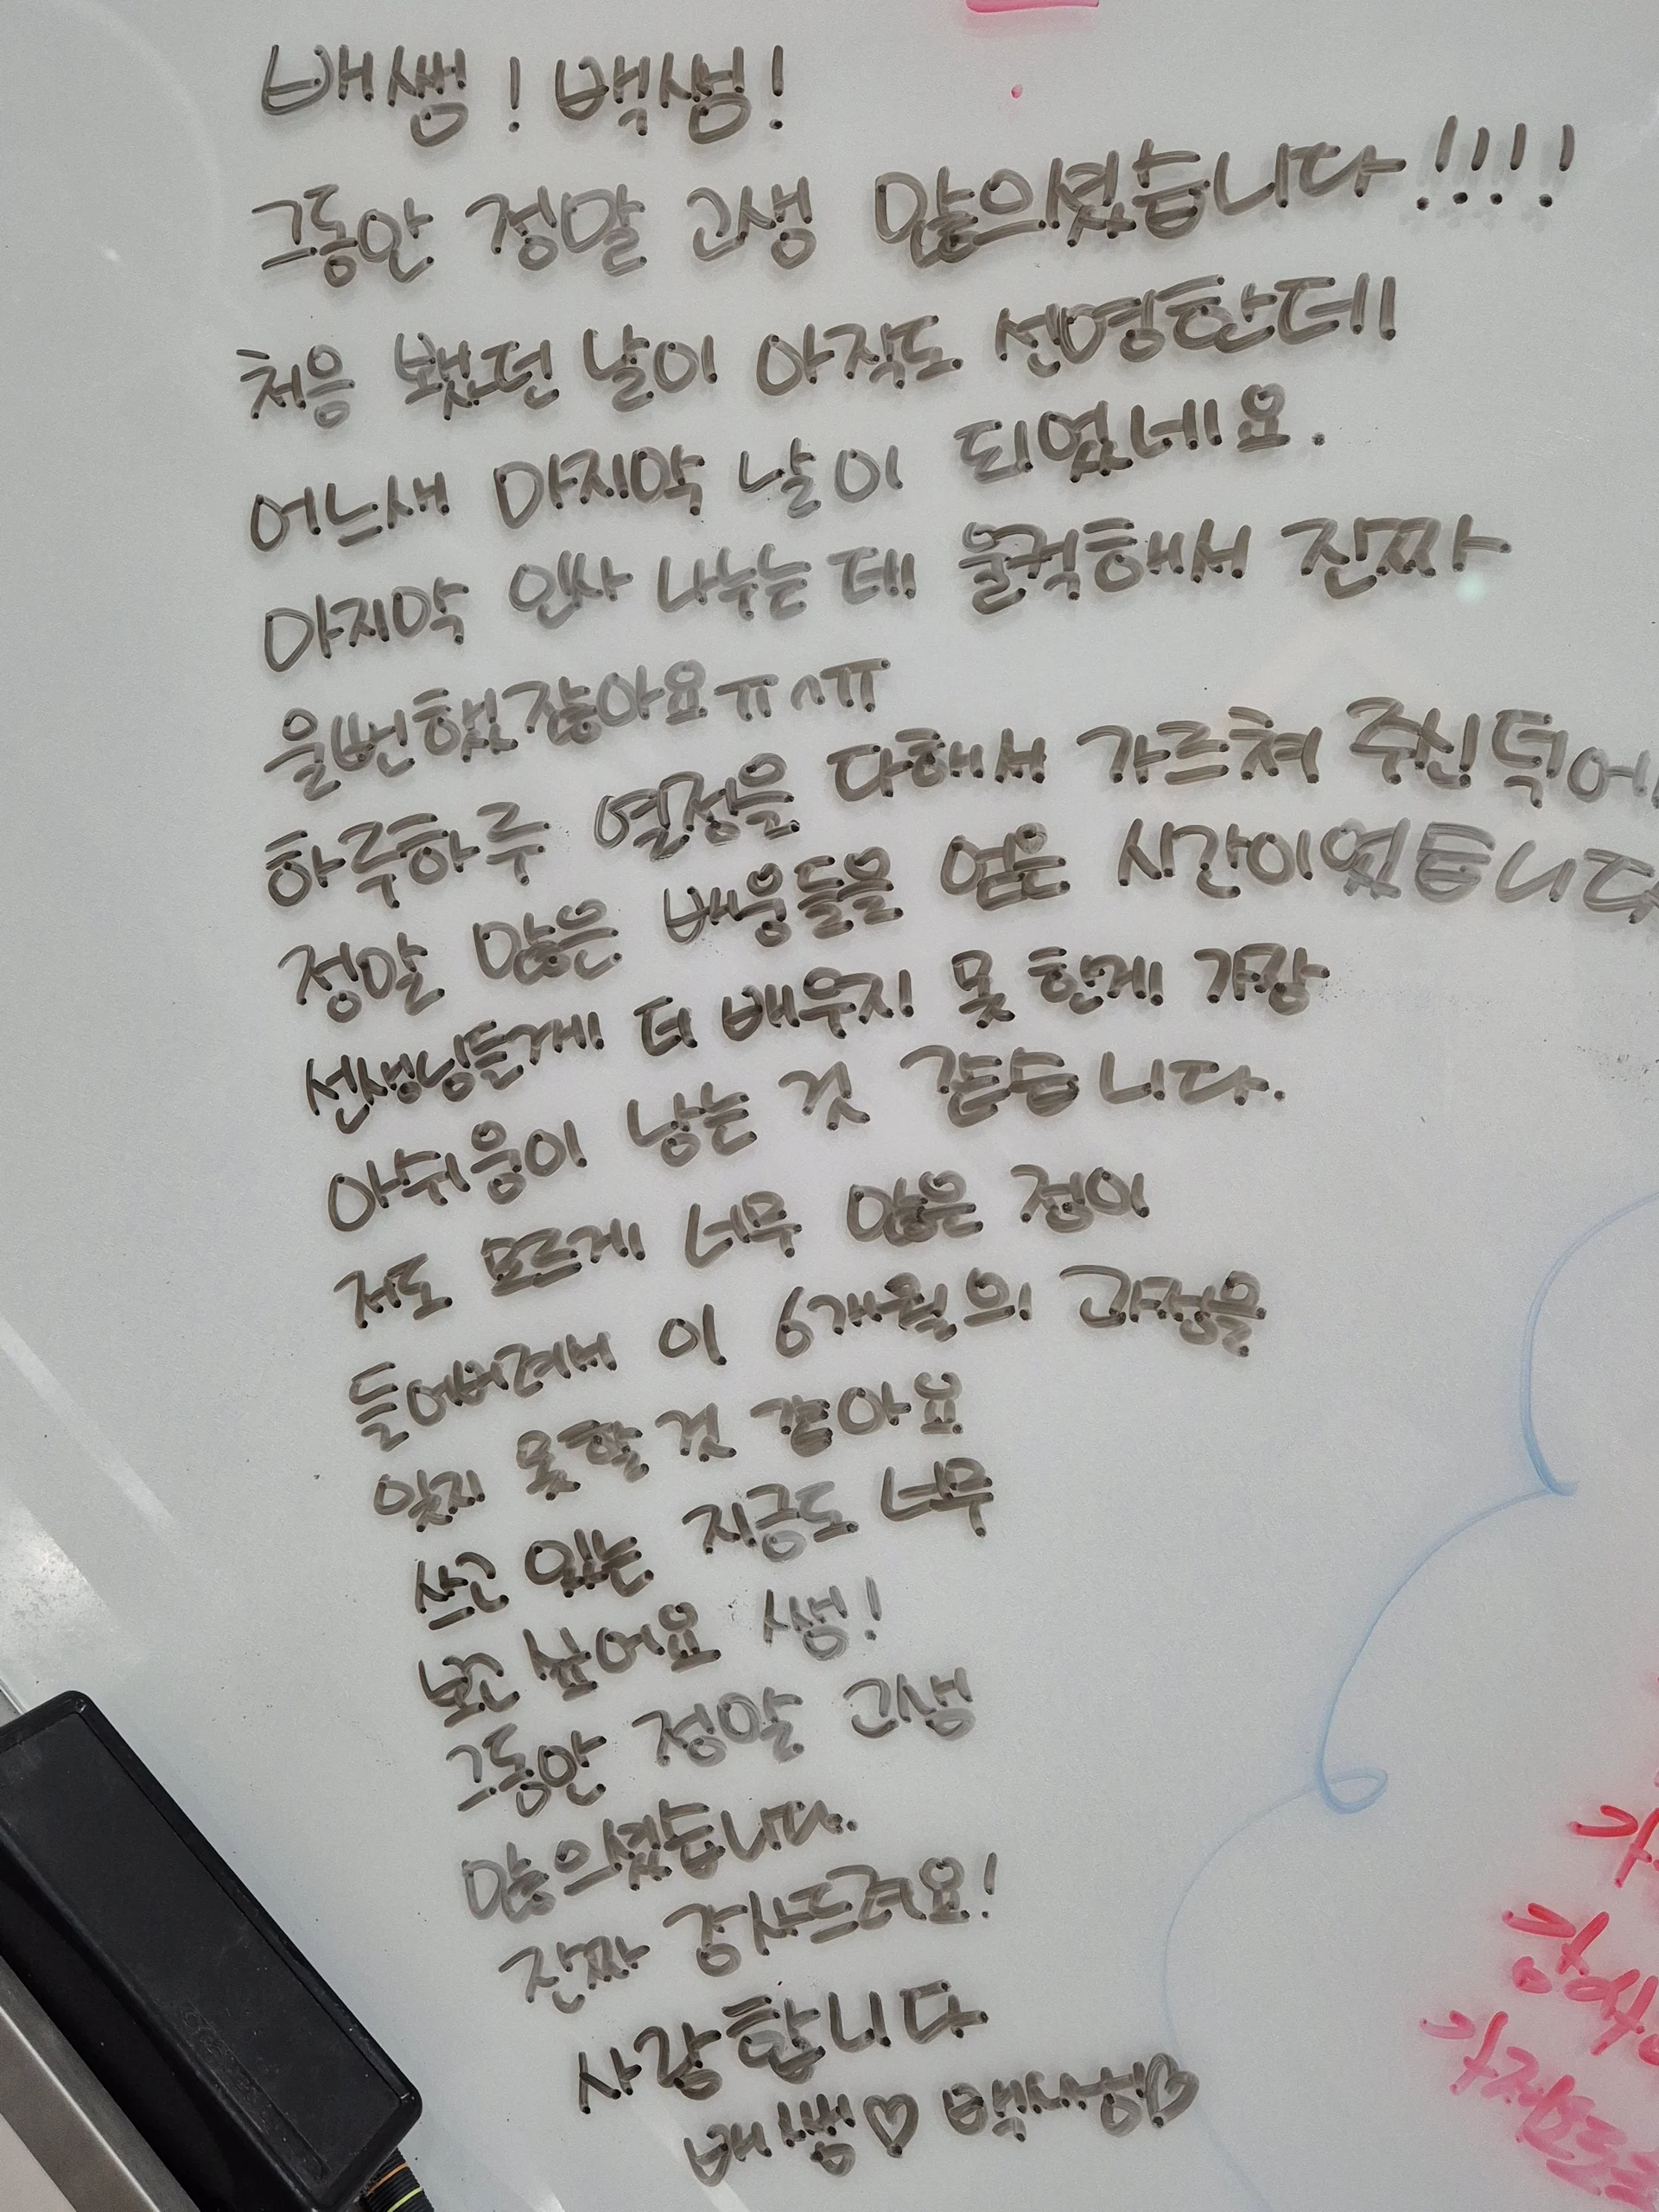 배쌤! 백쌤!
그동안 정말 고생 많으셨습니다!!!!
처음 뵀던 날이 아직도 선명한데
어느새 마지막 날이 되었네요.
마지막 인사 나누는데 울컥해서 진짜
울뻔했잖아요ㅠㅠ
하루하루 열정을 다해서 가르쳐 주신 덕에
정말 많은 배움들을 얻은 시간이었습니다
선생님들게 더 배우지 못한게 가장
아쉬움이 남는 것 같습니다.
저도 모르게 너무 많은 정이
들어버려서 이 6개월의 과정을
잊지 못할 것 같아요
쓰고 있는 지금도 너무
보고 싶어요 쌤!
그동안 정말 고생
많으셨습니다.
진짜 감사드려요!
사랑합니다
배쌤♡ 백쌤♡